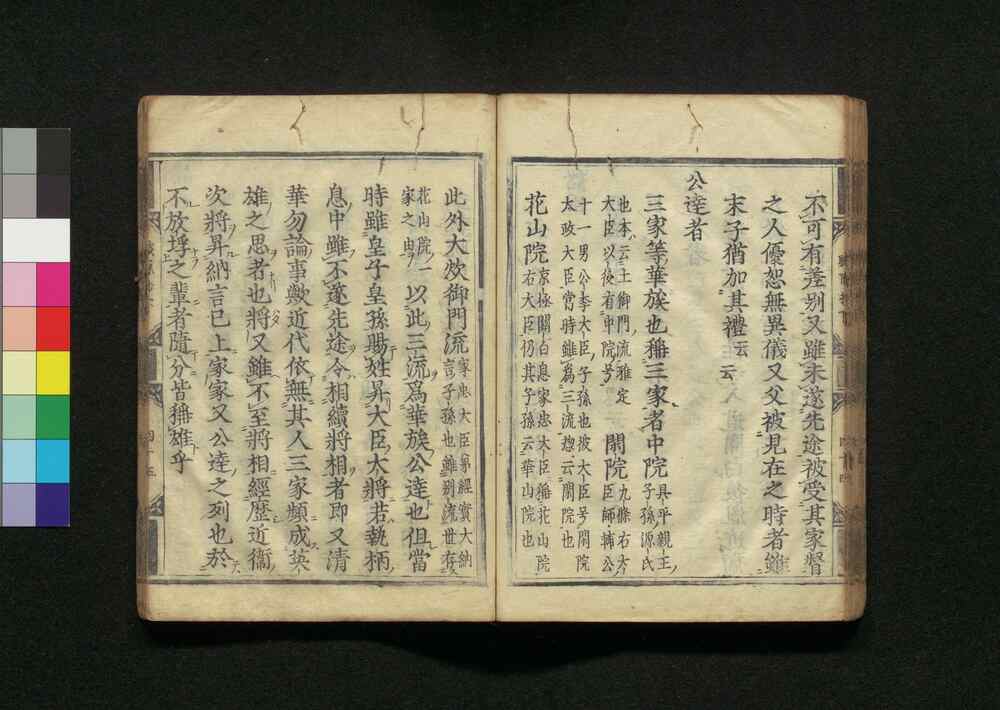 不可有差別又雖未遂先途被受其家督
之人優恕無異儀又父被見在之時者雖
末子猶加其禮云云
公達者
三家等華族也稱三家者中院具平親王子孫源氏
也本云土御門流雅定大臣以後有中院号 閑院九條右大臣師輔公
十一男公季大臣子孫也彼大臣号閑院太政大臣當時雖為三流惣云閑院也
花山院京極關白息家忠大臣稱花山院右大臣仍其子孫云華山院也
此外大炊御門流家忠大臣弟經實大納言子孫也雖別流世存
花山院一家之由以此三流為華族公達也但當
時雖皇子皇孫賜姓昇大臣大將若執柄
息中雖不遂先途令相續將相者即又清
華勿論事歟近代依無其人三家頻成英
雄之思者也將又雖不至將相經歷近衛
次將昇納言已上家家又公達之列也於
不放埒之輩者隨分皆稱雄乎